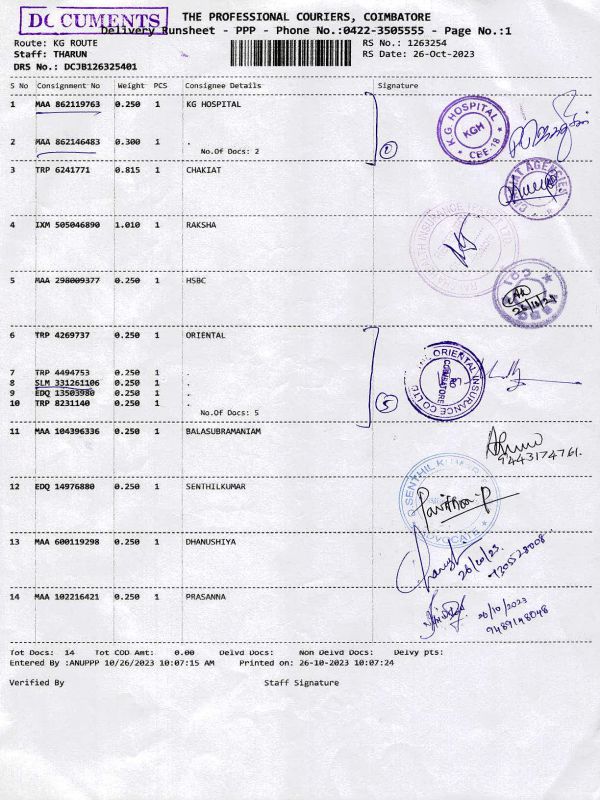 DOCUMENTS
THE PROFESSIONAL COURIERS, COIMBATORE
Delivery Runsheet - PPP - Phone No.:0422-3505555 - Page No.:1
Route: KG ROUTE
RS No.: 1263254
Staff: THARUN
RS Date: 26-Oct-2023
DRS No.: DCJB126325401
S No Consignment No Weight PCS Consignee Details Signature
1 MAA 862119763 0.250 1 KG HOSPITAL
KG HOSPITAL
KGH
CBE-18
2 MAA 862146483 0.300 1 .
No.Of Docs: 2
2
3 TRP 6241771 0.815 1 CHAKIAT
4 IXM 505046890 1.010 1 RAKSHA
5 MAA 298009377 0.250 1 HSBC
26/10/23
6 TRP 4269737 0.250 1 ORIENTAL
THE ORIENTAL INSURANCE CO LTD
COIMBATORE
7 TRP 4494753 0.250 1 .
8 SLM 331261106 0.250 1 .
9 EDQ 13503980 0.250 1 .
10 TRP 8231140 0.250 1 .
No.Of Docs: 5
5
11 MAA 104396336 0.250 1 BALASUBRAMANIAM
9443174761.
12 EDQ 14976880 0.250 1 SENTHILKUMAR
SENTHIL KUMAR
ADVOCATE
13 MAA 600119298 0.250 1 DHANUSHIYA
26/10/23.
14 MAA 102216421 0.250 1 PRASANNA
26/10/2023
9489148048
Tot Docs: 14 Tot COD Amt: 0.00 Delvd Docs: Non Delvd Docs: Delvy pts:
Entered By :ANUPPP 10/26/2023 10:07:15 AM Printed on: 26-10-2023 10:07:24
Verified By Staff Signature